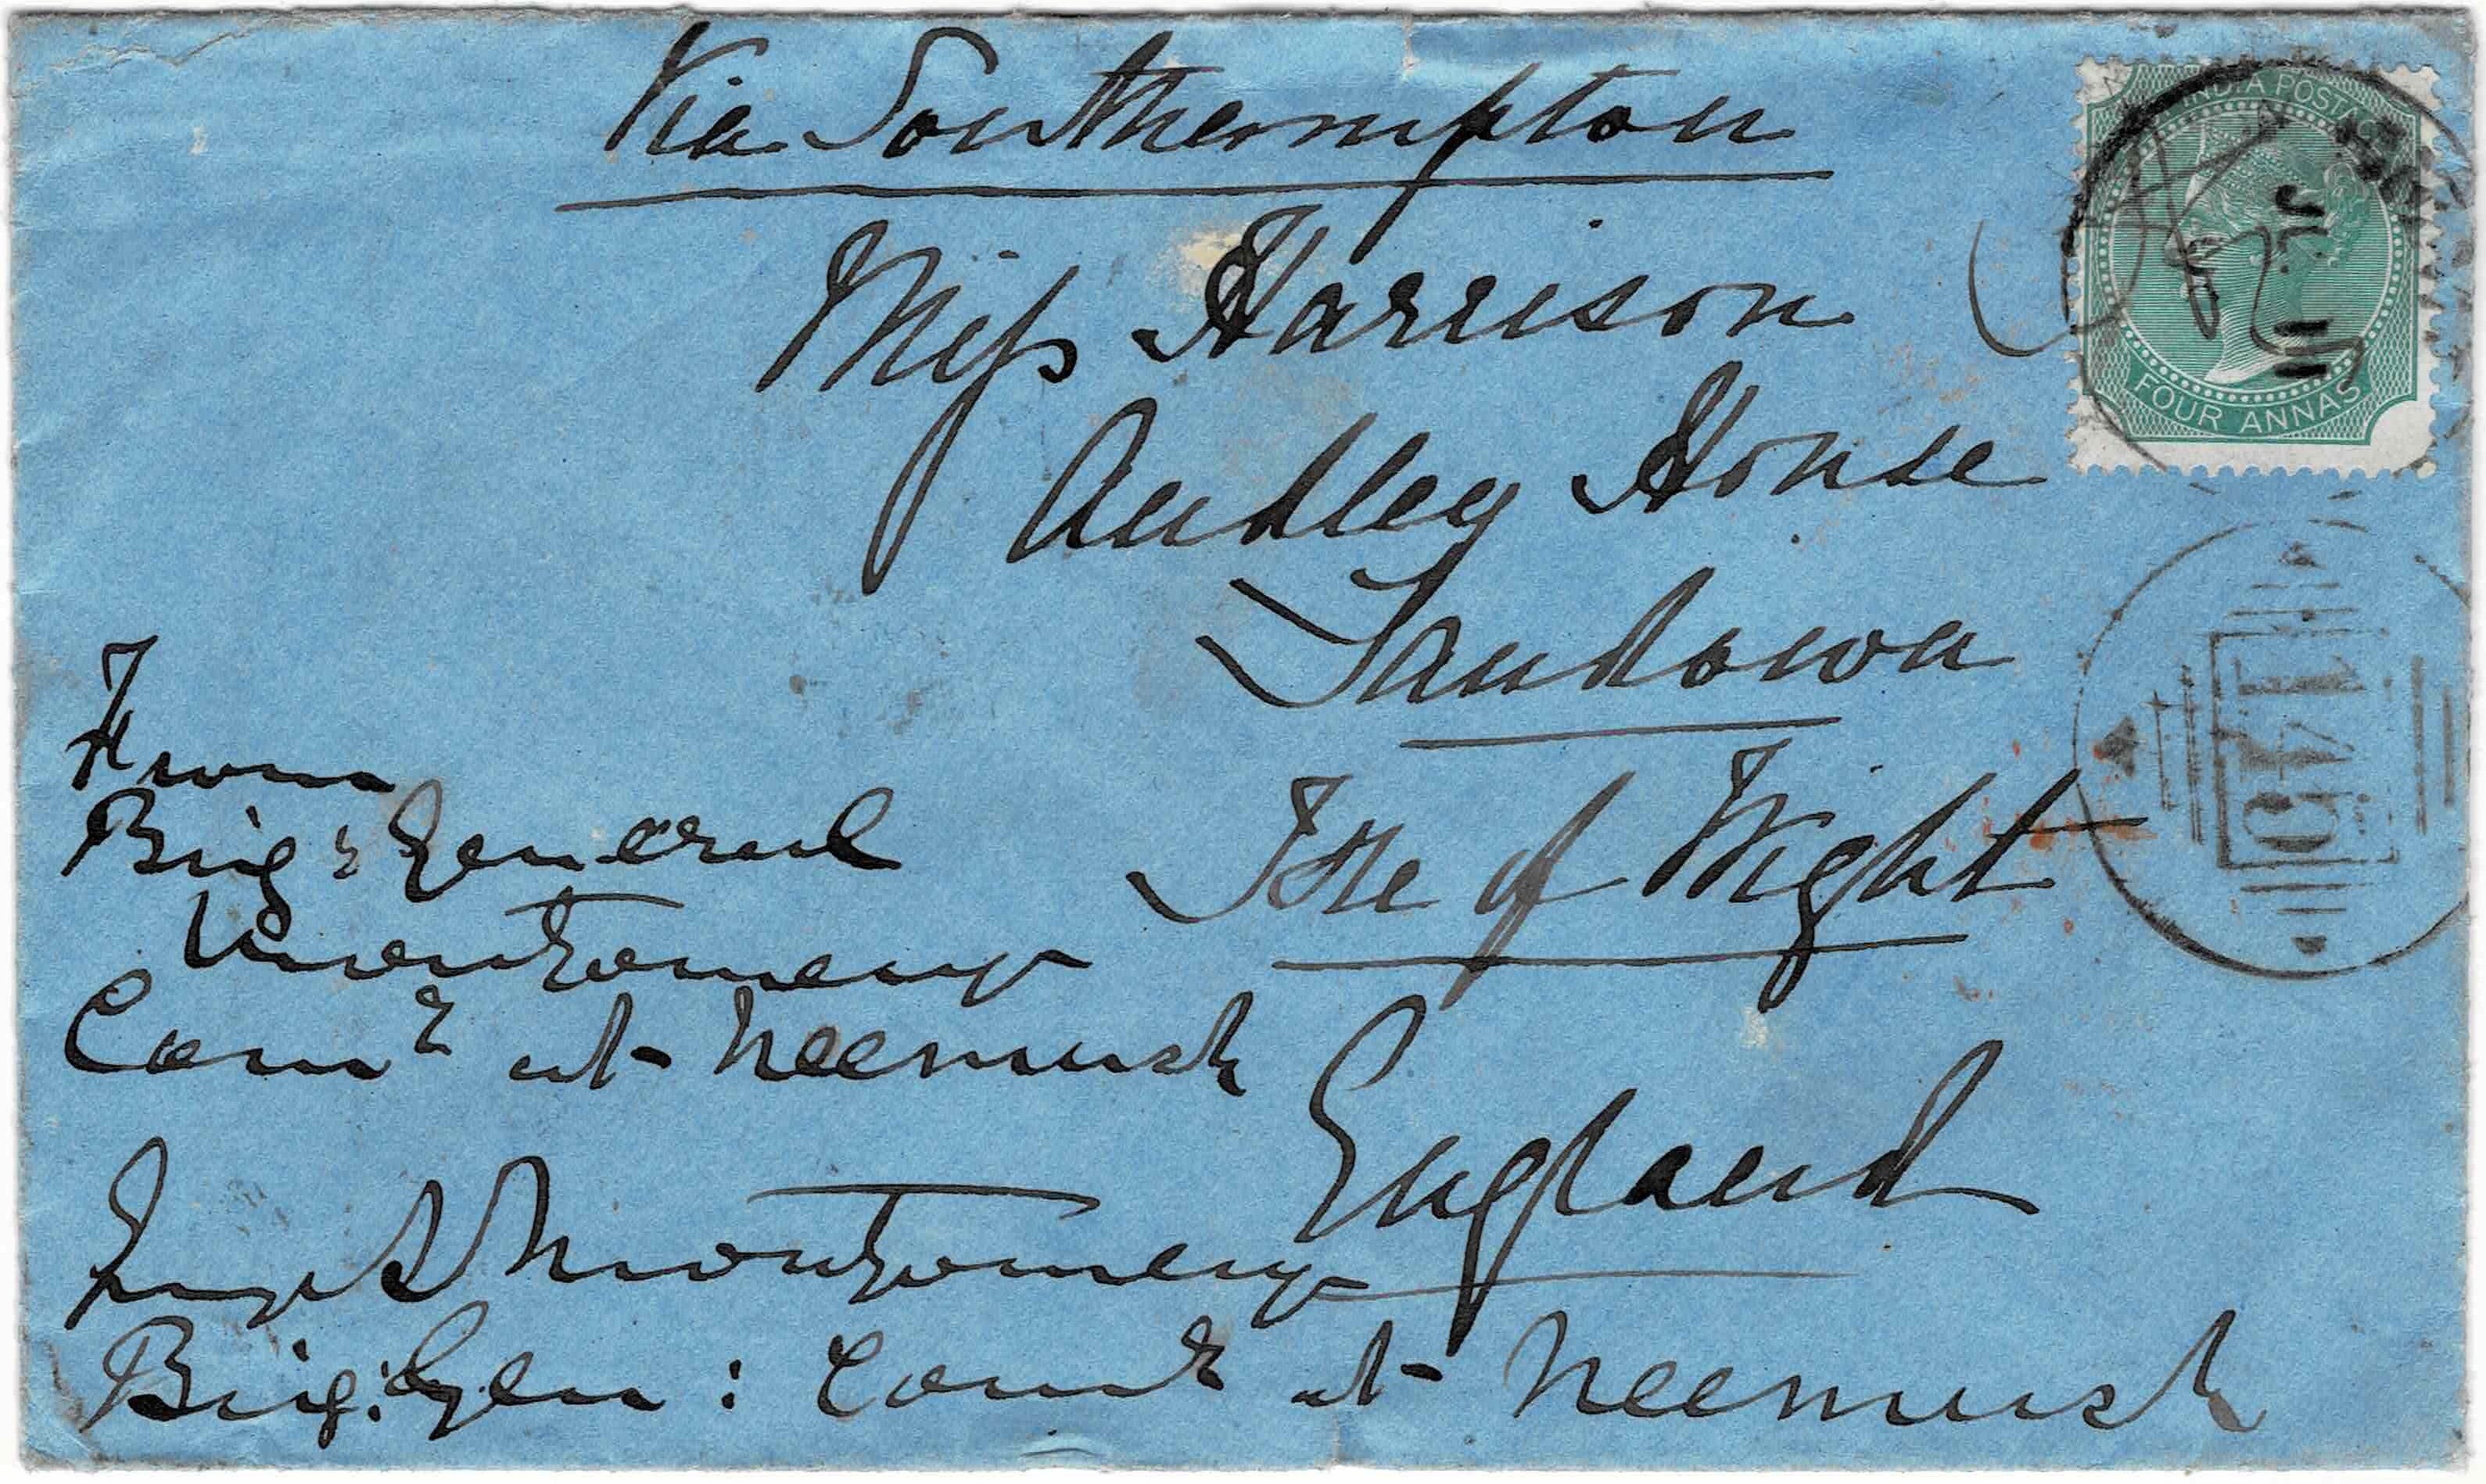 Via Southampton
INDIA POSTAGE
JL 11
FOUR ANNAS
Miss Harrison
Audley House
Sandown
Isle of Wight
England
145
From
Brig: General
Montgomery
Comg at Neemuch
Montgomery
Brig: Gen: Comg at Neemuch